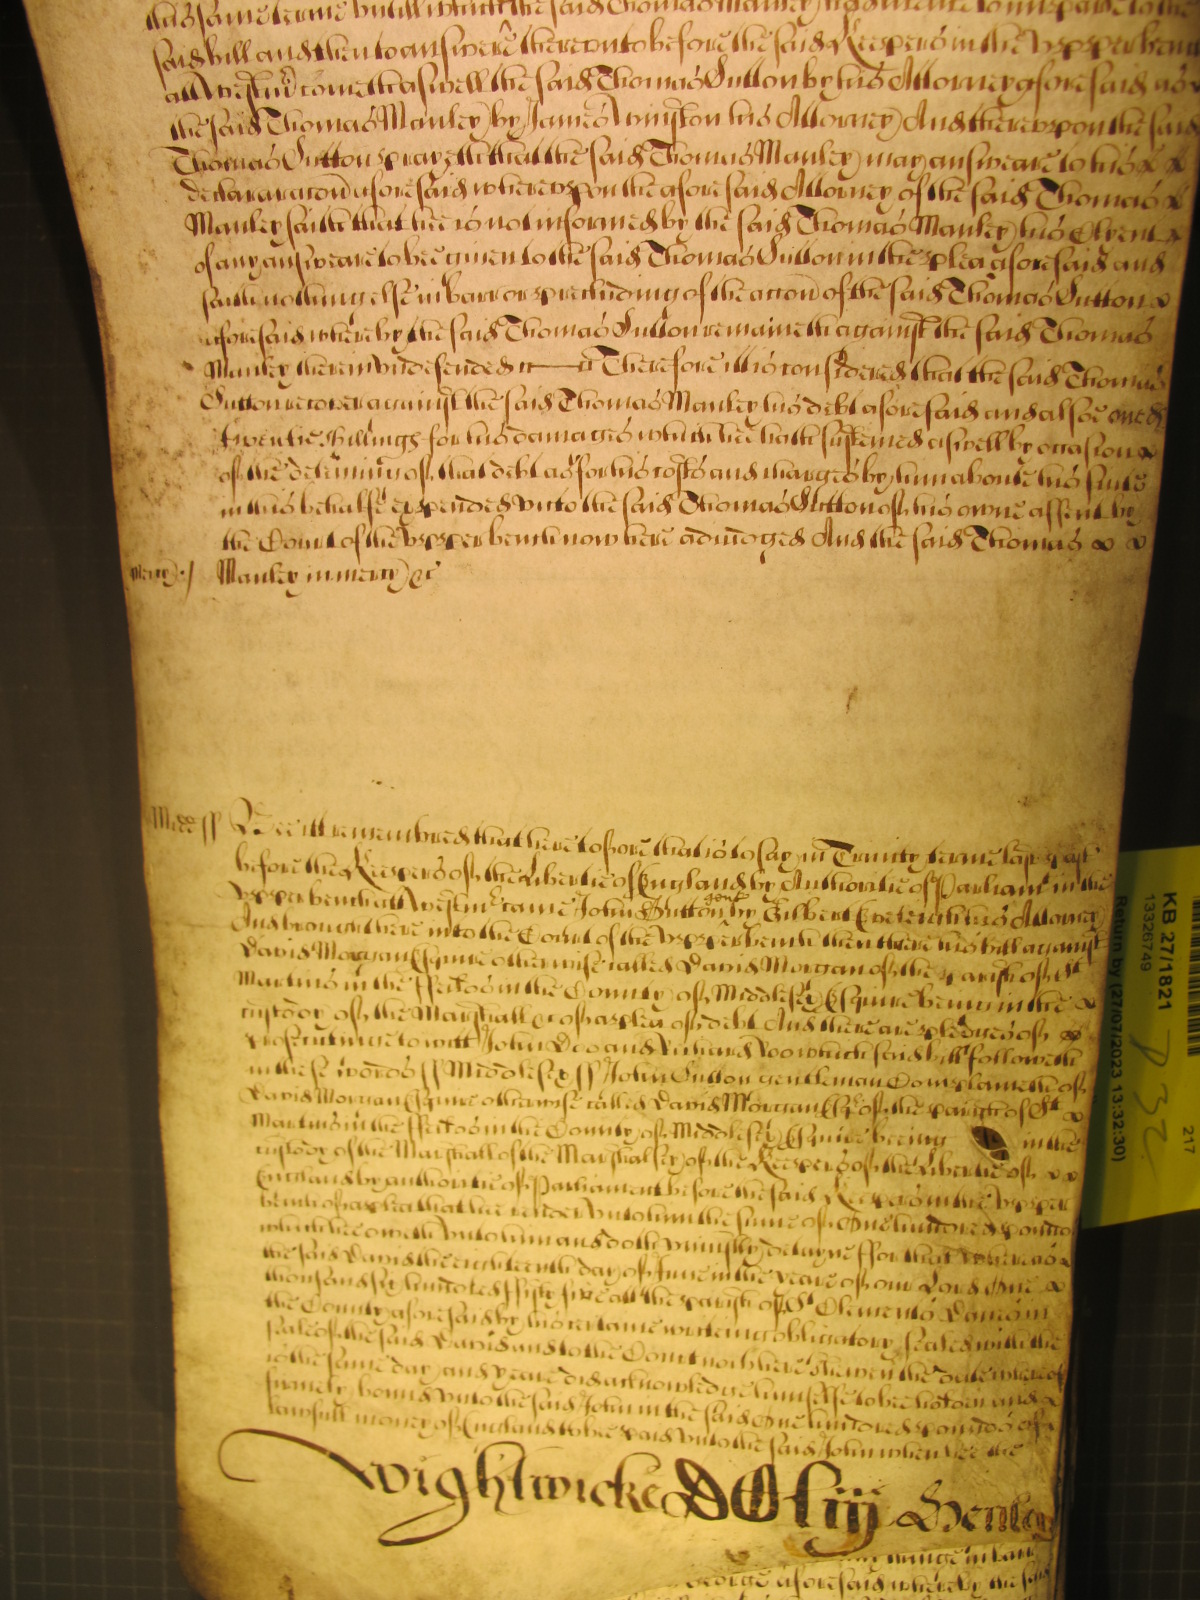 this same terme untill which the said Thomas Manley had licence to imparle to the
said bill and then to answere thereunto before the said Keepers in the Upper bench
att Westmr cometh aswell the said Thomas Sutton by his Attorney aforesaid as
the said Thomas Manley by James Winston his Attorney And thereupon the said
Thomas Sutton prayeth that the said Thomas Manley may answeare to his
declaracon aforesaid whereupon the aforesaid Attorney of the said Thomas
Manley saith that hee is not informed by the said Thomas Manley his Clyent
of any answeare to bee given to the said Thomas Sutton in the plea aforesaid and
saith nothing else in barr or precluding of the accon of the said Thomas Sutton
aforesaid whereby the said Thomas Sutton remaineth against the said Thomas
Manley therein undefended &c Therefore itt is considered that the said Thomas
Sutton recover against the said Thomas Manley his debt aforesaid and alsoe one &
twentie shillings for his damages which hee hath susteined aswell by occasion
of the deteining of that debt as for his costs and charges by him aboute his suite
in this behalfe expended unto the said Thomas Sutton of his owne assent by
the Court of the Upper bench now here adiudged And the said Thomas
mercy Manley in mercy &c
Midd ss Bee itt remembred that heretofore that is to say in Trinity terme last past
before the Keepers of the Libertie of England by Authoritie of Parliamt in the
Upper bench att Westmr came John Sutton gent by Gilbert Eveleigh his Attorney
And brought here into the Court of the Upper bench then there his bill against
David Morgan Esquire otherwise called David Morgan of the parish of St
Martins in the ffeilds in the County of Middlesex Esquire being in the
custody of the Marshall &c of a plea of debt And there are pledges of
prosecuting to witt John Doo and Richard Roo which said bill followeth
in these words ss Middlesex ss John Sutton gentleman Complaineth of
David Morgan Esquire otherwise called David Morgan Esq of the parish of St
Martins in the ffeilds in the County of Middlesex Esquire beeing in the
custody of the Marshall of the Marshalsey of the Keepers of the Libertie of
England by authoritie of Parliament before the said Keepers in the Upper
bench of a plea that hee render unto him the summe of One hundred pounds
which hee oweth unto him and doth uniustly detayne ffor that whereas
the said David the eighteenth day of June in the yeare of our Lord One
thousand six hundred ffifty five att the parish of St Clements Danes in
the County aforesaid by his certaine writeing obligatory sealed with the
seale of the said David and to the Court now here shewen the date whereof
is the same day and yeare did acknowledge himselfe to bee holden and
firmely bound unto the said John in the said One hundred pounds of
lawfull money of England to bee paid unto the said John when hee the
Wightwicke DCliij Henley
George aforesaid whereby the said
KB 27/1821
13326749
Return by (27/07/2023 13:32:30)
217